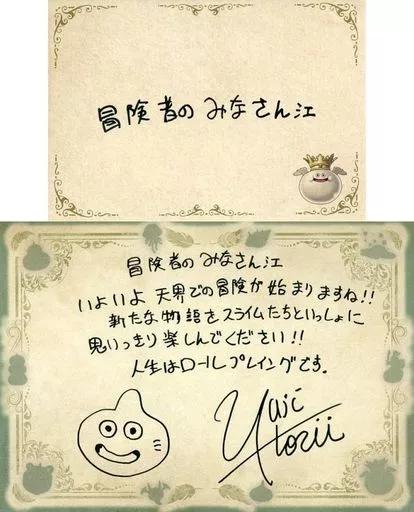 冒険者のみなさん江
冒険者のみなさん江
いよいよ天界での冒険が始まりますね!!
新たな物語をスライムたちといっしょに
思いっきり楽しんでください!!
人生はロールプレイングです。
Yuji
Horii